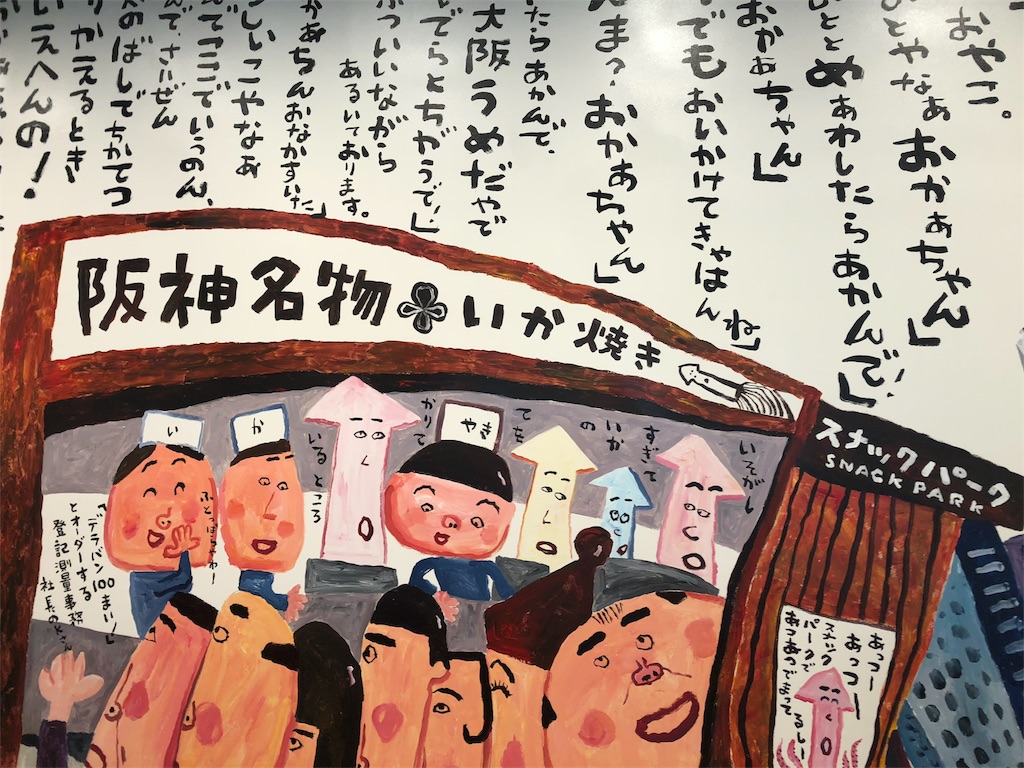 おやこ。
とやなぁ おかぁちゃん」
ひととめぁわしたらあかんで!」
おかぁちゃん」
でもおいかけてきゃはんね」
ま?おかあちゃん」
たらあかんで、
大阪うめだやで
でらとちがうで!」
ついいながら
あるいております。
かあちゃんおなかすいた」
しいこやなぁ
でここでいうのん、
んで、さいぜん
のばしでちかてつ
かえるとき
こえへんの!
阪神名物 いか焼き
スナックパーク
SNACK PARK
いそがし
すぎて
いかの
てを
かりて
いるところ
い
か
やき
「デラバン100まい!」
とオーダーする
登記測量事務
社長の
あっつー
あっつー
スナック
パークで
あつあつでまって
るしー